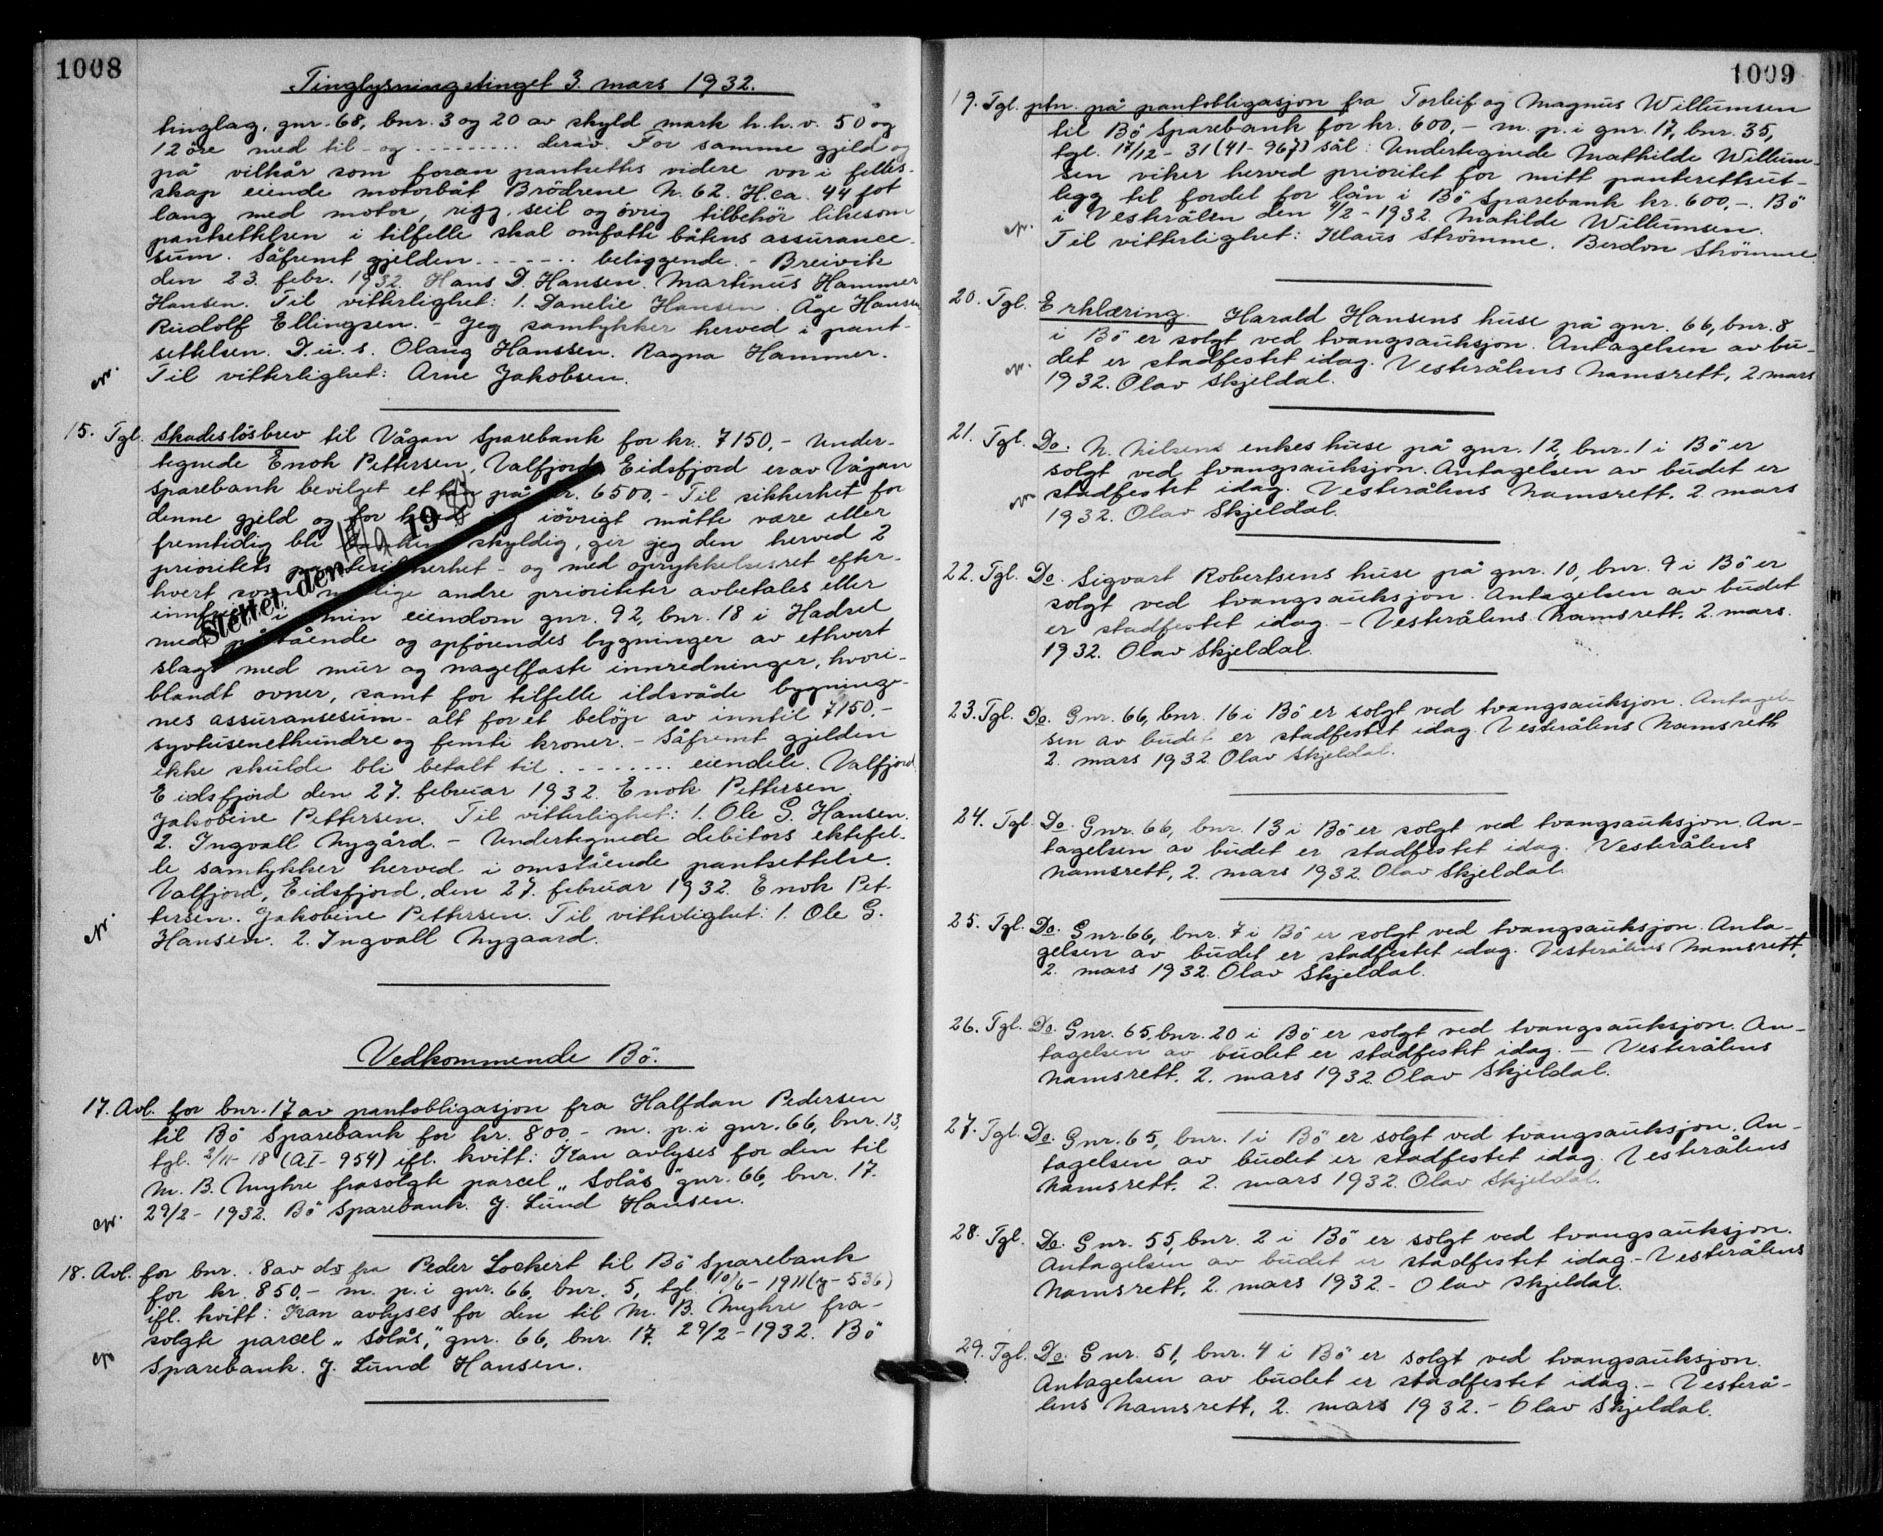 1008
Tinglysningstinget 3. mars 1932.
tinglag, gnr. 68, bnr. 3 og 20 av skyld mark h.h.v. 50 og
12 öre med til- og ......... derav. For samme gjeld og
på vilkår som foran pantsettes videre vor i felles-
skap eiende motorbåt Brödrene N. 62. H. ca. 44 fot
lang med motor, rigg, seil og övrig tilbehör likesom
pantsettelsen i tilfelle skal omfatte båtens assurance-
sum. Såfremt gjelden ....... beliggende. - Breivik
den 23. febr. 1932. Hans D. Hansen. Martinus Hammer
Hansen. Til vitterlighet: 1. Danelie Hansen. Åge Hansen
Rudolf Ellingsen. - Jeg samtykker herved i pant-
settelsen. D.u.s. Olaug Hanssen. Ragna Hammer.
Til vitterlighet: Arne Jakobsen.
15. Tgl. Skadeslösbrev til Vågan Sparebank for kr. 7150,- Under-
tegnede Enok Pettersen, Valfjord, Eidsfjord er av Vågan
Sparebank bevilget et lån på kr. 6500,- Til sikkerhet for
denne gjeld og for hvad jeg iövrigt måtte være eller
fremtidig bli banken skyldig, gir jeg den herved 2
prioritets pantesikkerhet - og med oprykkelsesret efter-
hvert som mulige andre prioriteter avbetales eller
innfries i min eiendom gnr. 92, bnr. 18 i Hadsel
med påstående og opförendes bygninger av ethvert
slags med mur og nagelfaste innredninger, hvori-
blandt ovner, samt for tilfelle ildsvåde bygninge-
nes assuransesum - alt for et belöp av inntil 7150.-
syvtusenethundre og femti kroner. - Såfremt gjelden
ikke skulde bli betalt til ........ eiendele. Valfjord
Eidsfjord den 27. februar 1932. Enok Pettersen.
Jakobine Pettersen. Til vitterlighet: 1. Ole G. Hansen.
2. Ingvall Nygård. - Undertegnede debitors ektefel-
le samtykker herved i omstående pantsettelse.
Valfjord, Eidsfjord, den 27. februar 1932. Enok Pet-
tersen. Jakobine Pettersen. Til vitterlighet: 1. Ole G.
Hansen. 2. Ingvall Nygaard.
Slettet den 19
Vedkommende Bö.
17. Avl. for bnr. 17 av pantobligasjon fra Halfdan Pedersen
til Bö Sparebank for kr. 800,- m. p. i gnr. 66, bnr. 13,
tgl. 2/11-18 (AI-954) ifl. kvitt: Kan avlyses for den til
M. B. Myhre frasolgte parcel „Solås" gnr. 66, bnr. 17.
29/2-1932. Bö Sparebank. J. Lund Hansen.
18. Avl. for bnr. 8 av do fra Peder Lockert til Bö Sparebank
for kr. 850,- m. p. i gnr. 66, bnr. 5, tgl. 10/6-1911 (y-536)
ifl. kvitt: Kan avlyses for den til M. B. Myhre fra-
solgte parcel „Solås," gnr. 66, bnr. 17. 29/2-1932. Bö
Sparebank. J. Lund Hansen.
1009
19. Tgl. ptn. på pantobligasjon fra Torleif og Magnus Willumsen
til Bö Sparebank for kr. 600,- m. p. i gnr. 17, bnr. 35,
tgl. 17/12-31 (41-967) sål: Undertegnede Mathilde Willum-
sen viker herved prioritet for mitt panterettsut-
legg til fordel for lån i Bö Sparebank kr. 600,-. Bö
i Vesterålen den 1/2-1932. Matilde Willumsen.
Til vitterlighet: Klaus Strömme. Berdon Strömme.
20. Tgl. Erklæring. Harald Hansens huse på gnr. 66, bnr. 8
i Bö er solgt ved tvangsauksjon. Antagelsen av bu-
det er stadfestet idag. Vesterålens Namsrett, 2. mars
1932. Olav Skjeldal.
21. Tgl. Do. N. Nilsens enkes huse på gnr. 12, bnr. 1 i Bö er
solgt ved tvangsauksjon. Antagelsen av budet er
stadfestet idag. Vesterålens Namsrett, 2. mars
1932. Olav Skjeldal.
22. Tgl. Do. Sigvart Robertsens huse på gnr. 10, bnr. 9 i Bö er
solgt ved tvangsauksjon. Antagelsen av budet
er stadfestet idag. - Vesterålens Namsrett, 2. mars.
1932. Olav Skjeldal.
23. Tgl. Do. Gnr. 66, bnr. 16 i Bö er solgt ved tvangsauksjon. Antagel-
sen av budet er stadfestet idag. Vesterålens Namsrett
2. mars 1932. Olav Skjeldal.
24. Tgl. Do. Gnr. 66, bnr. 13 i Bö er solgt ved tvangsauksjon. An-
tagelsen av budet er stadfestet idag. Vesterålens
Namsrett, 2. mars 1932. Olav Skjeldal.
25. Tgl. Do. Gnr. 66, bnr. 7 i Bö er solgt ved tvangsauksjon. Anta-
gelsen av budet er stadfestet idag. Vesterålens Namsrett,
2. mars 1932. Olav Skjeldal.
26. Tgl. Do. Gnr. 65, bnr. 20 i Bö er solgt ved tvangsauksjon. An-
tagelsen av budet er stadfestet idag. - Vesterålens
Namsrett, 2. mars 1932. Olav Skjeldal.
27. Tgl. Do. Gnr. 65, bnr. 1 i Bö er solgt ved tvangsauksjon. An-
tagelsen av budet er stadfestet idag. Vesterålens
Namsrett, 2. mars 1932. Olav Skjeldal.
28. Tgl. Do. Gnr. 55, bnr. 2 i Bö er solgt ved tvangsauksjon.
Antagelsen av budet er stadfestet idag. - Vesterålens
Namsrett, 2. mars 1932 - Olav Skjeldal.
29. Tgl. Do. Gnr. 51, bnr. 4 i Bö er solgt ved tvangsauksjon.
Antagelsen av budet er stadfestet idag. - Vesterå-
lens Namsrett, 2. mars 1932. - Olav Skjeldal.